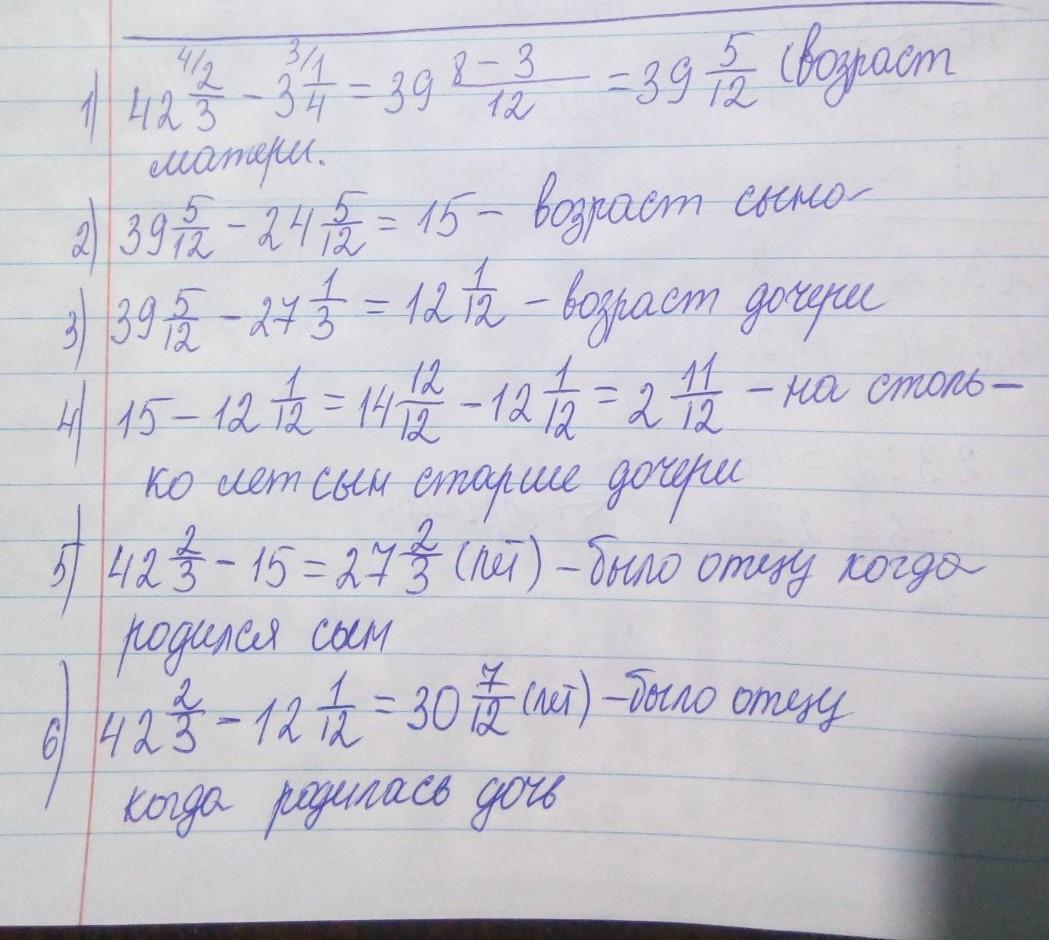 1) 42 4/2/3 - 3 3/1/4 = 39 8-3/12 = 39 5/12 (возраст
матери.
2) 39 5/12 - 24 5/12 = 15 - возраст сына
3) 39 5/12 - 27 1/3 = 12 1/12 - возраст дочери
4) 15 - 12 1/12 = 14 12/12 - 12 1/12 = 2 11/12 - на столь-
ко лет сын старше дочери
5) 42 2/3 - 15 = 27 2/3 (лет) - было отцу когда
родился сын
6) 42 2/3 - 12 1/12 = 30 7/12 (лет) - было отцу
когда родилась дочь